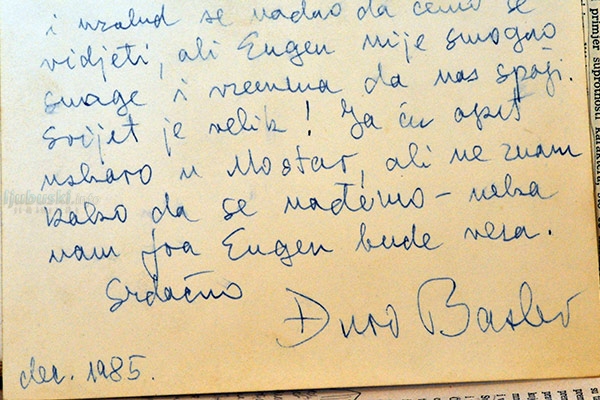 i uzalud se nadao da ćemo se
vidjeti, ali Eugen nije smogao
snage i vremena da nas spoji.
Svijet je velik! Ja ću opet
uskoro u Mostar, ali ne znam
kako da se nađemo – neka
nam fra Eugen bude veza.
Srdačno
Đuro Basler
dec. 1985.
ljubuski
primjer suprotnosti